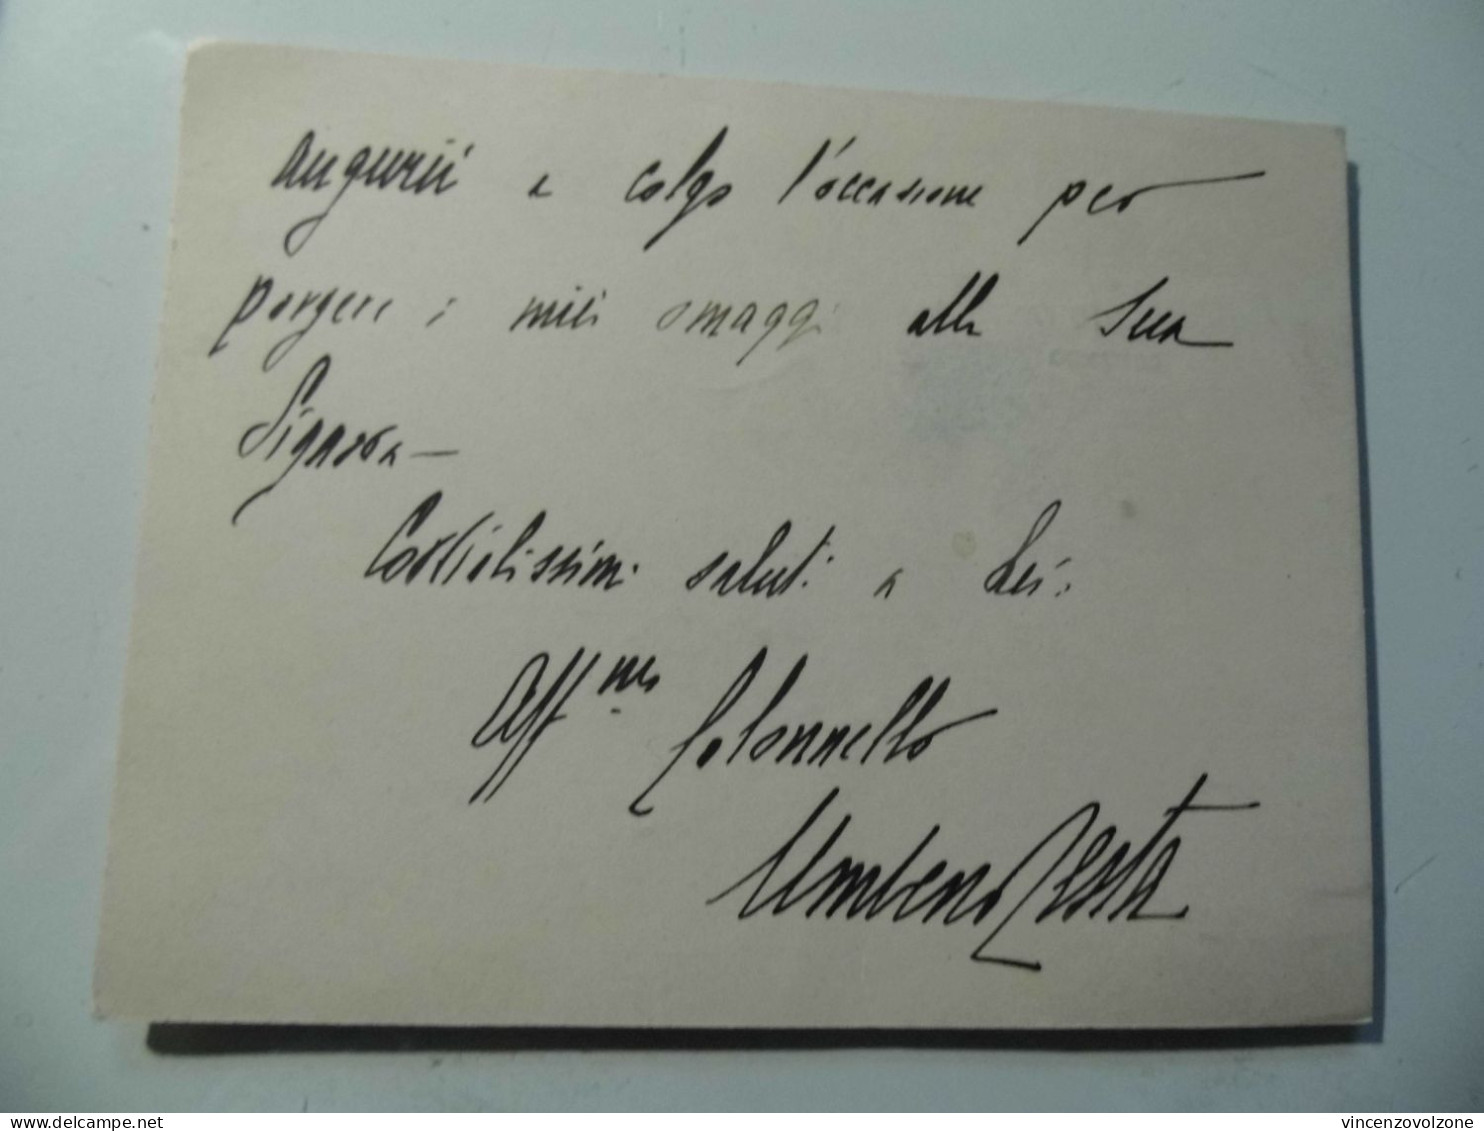 augurii e colgo l'occasione per
porgere i miei omaggi alla Sua
Signora —
Cordialissimi saluti a Lei.
Aff.mo Colonnello
Umberto Testa
vincenzovolzone